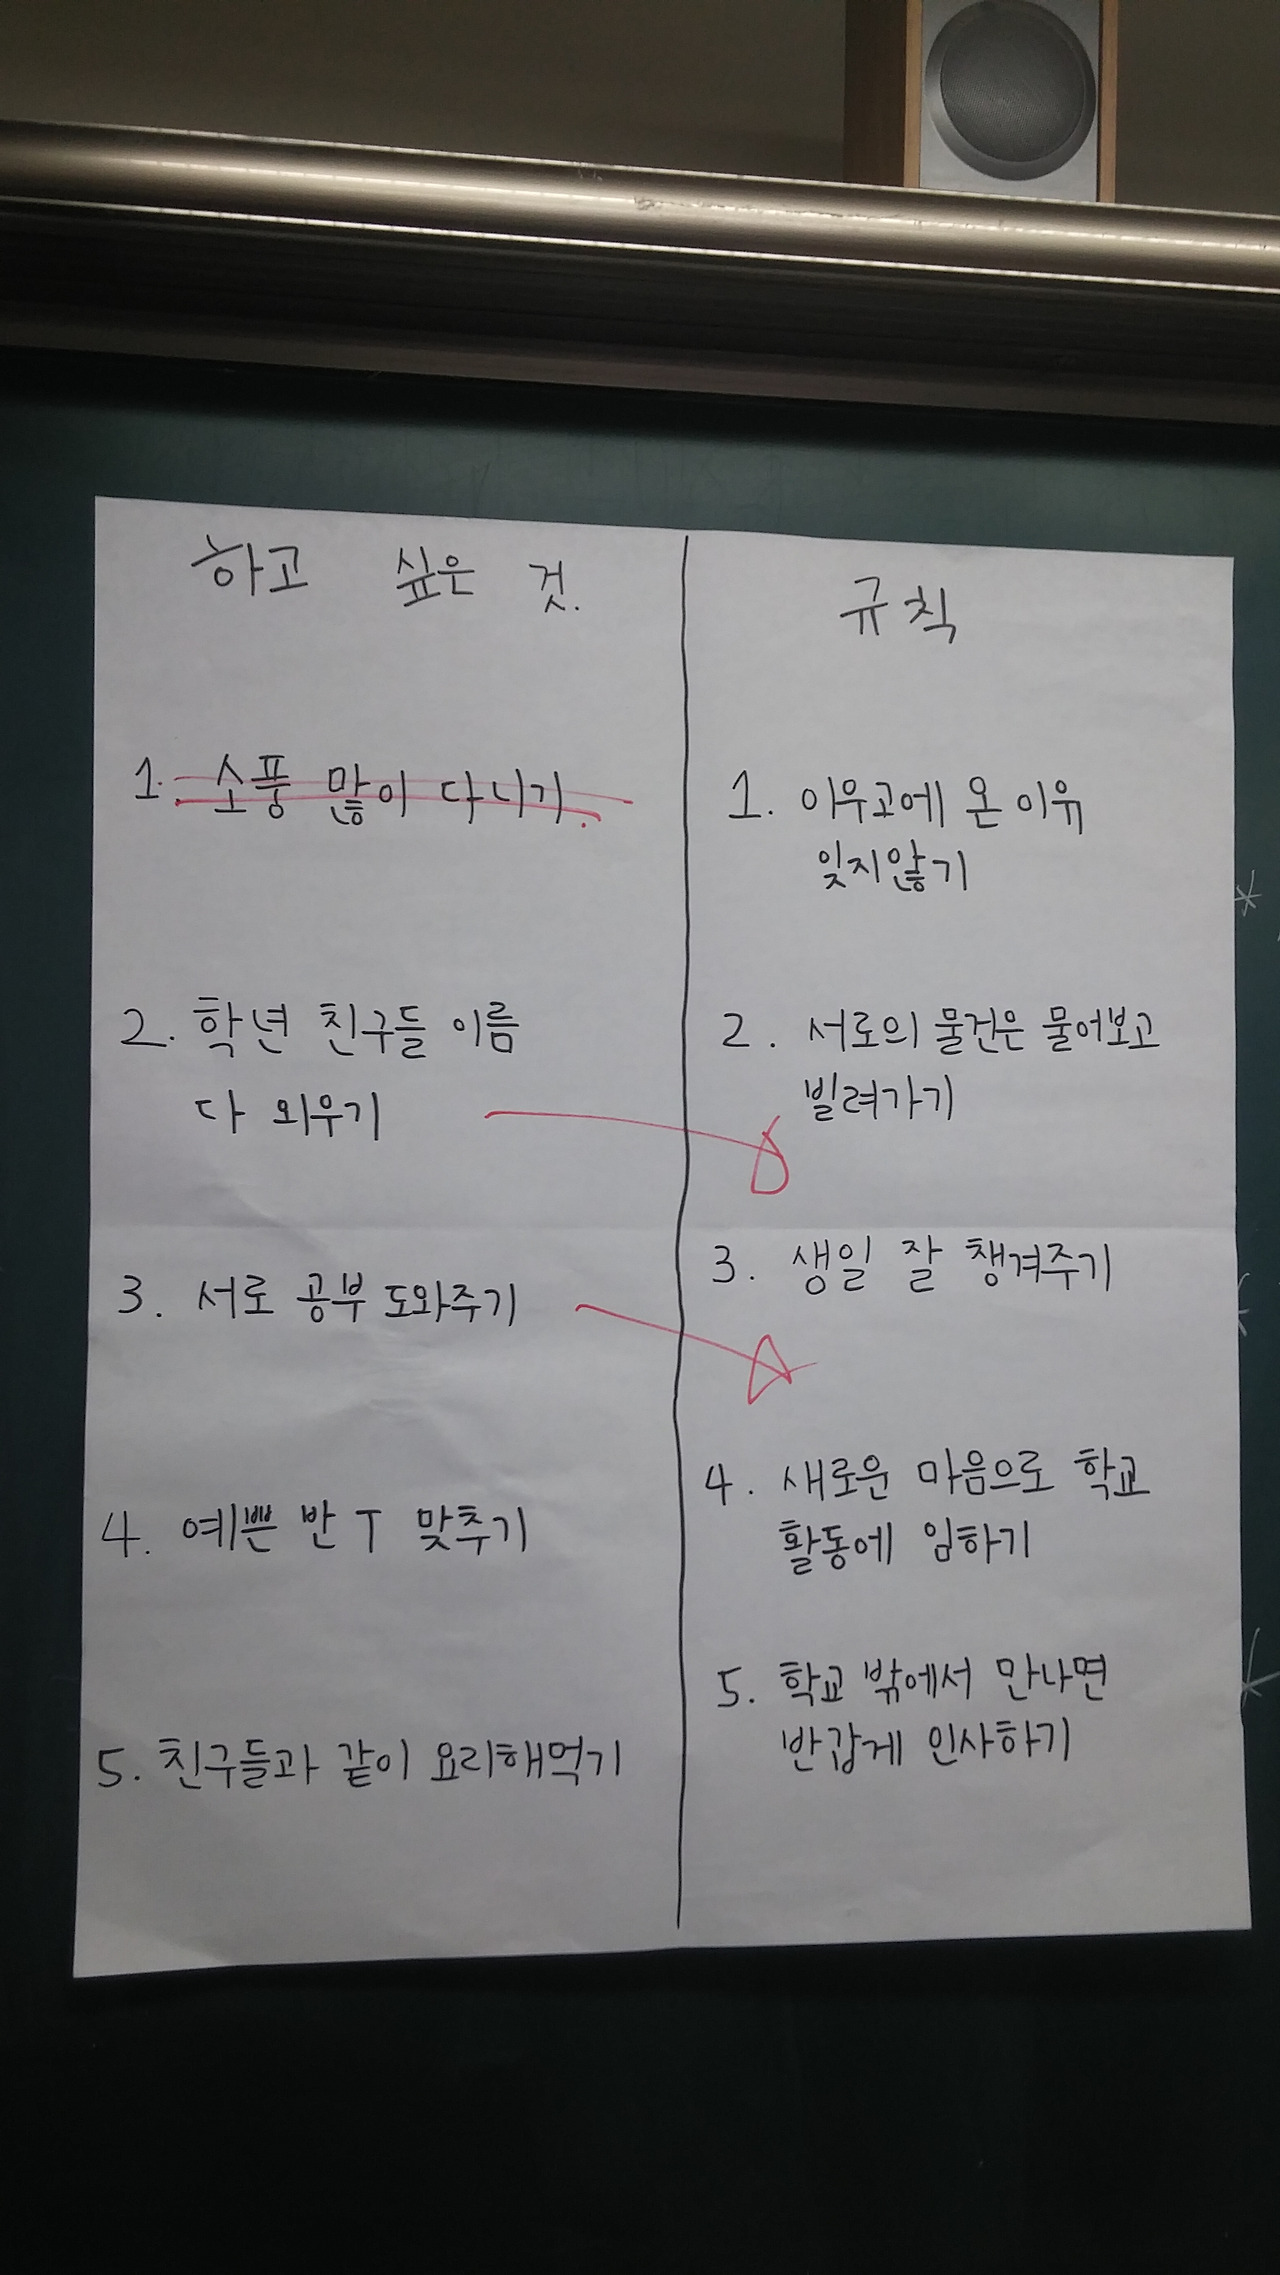 하고 싶은 것.
1. 소풍 많이 다니기.
2. 학년 친구들 이름
다 외우기
3. 서로 공부 도와주기
4. 예쁜 반 T 맞추기
5. 친구들과 같이 요리해먹기
규칙
1. 이우고에 온 이유
잊지않기
2. 서로의 물건은 물어보고
빌려가기
3. 생일 잘 챙겨주기
4. 새로운 마음으로 학교
활동에 임하기
5. 학교 밖에서 만나면
반갑게 인사하기